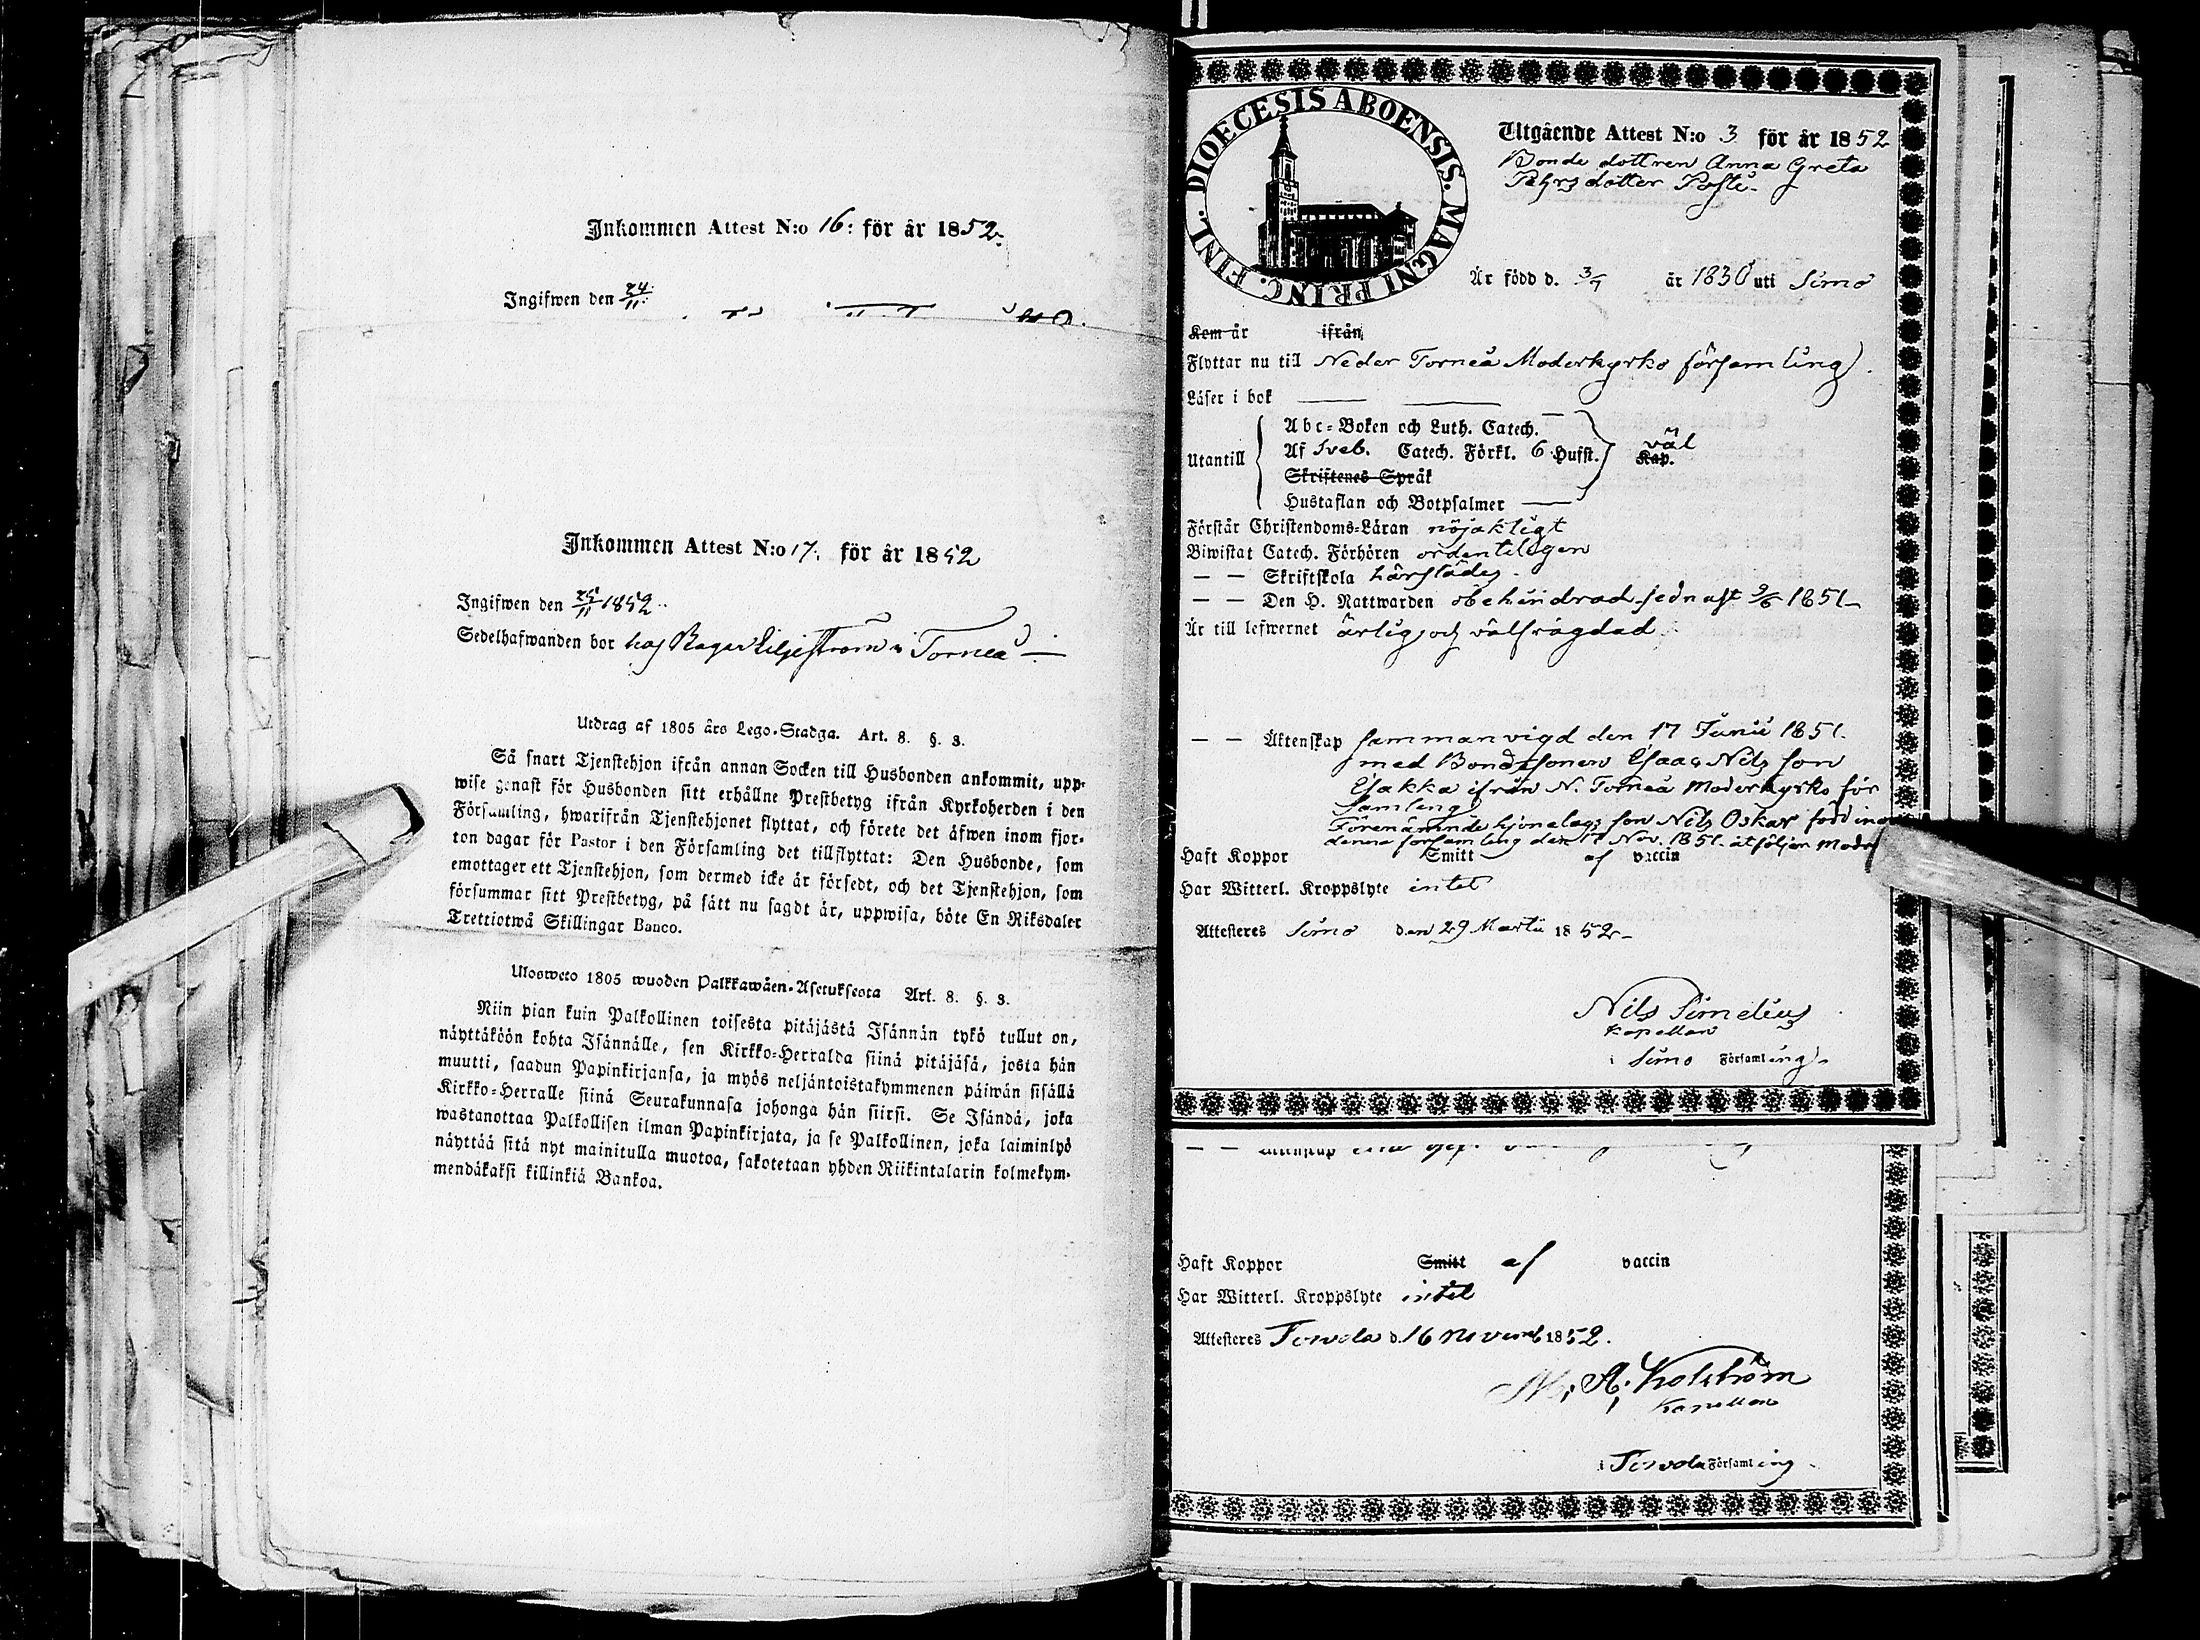 Inkommen Attest N:o 16: för år 1852.
Ingifwen den 24/11
Inkommen Attest N:o 17. för år 1852
Ingifwen den 25/11 1852.
Sedelhafwanden bor hos Bagar Liljeström i Torneå
Utdrag af 1805 års Lego-Stadga. Art. 8. §. 3.
Så snart Tjenstehjon ifrån annan Socken till Husbonden ankommit, upp-
wise genast för Husbonden sitt erhållne Prestbetyg ifrån Kyrkoherden i den
Församling, hwarifrån Tjenstehjonet flyttat, och förete det äfwen inom fjor-
ton dagar för Pastor i den Församling det tillflyttat: Den Husbonde, som
emottager ett Tjenstehjon, som dermed icke är försedt, och det Tjenstehjon, som
försummar sitt Prestbetyg, på sätt nu sagdt är, uppwisa, böte En Riksdaler
Trettiotwå Skillingar Banco.
Ulosweto 1805 wuoden Palkkawäen-Asetuksesta Art. 8. §. 3.
Niin pian kuin Palkollinen toisesta pitäjästä Isännän tykö tullut on,
näyttäköön kohta Isännälle, sen Kirkko-Herralda siinä pitäjäsä, josta hän
muutti, saadun Papinkirjansa, ja myös neljäntoistakymmenen päiwän sisällä
Kirkko-Herralle siinä Seurakunnasa johonga hän siirsi. Se Isändä, joka
wastanottaa Palkollisen ilman Papinkirjata, ja se Palkollinen, joka laiminlyö
näyttää sitä nyt mainitulla muotoa, sakotetaan yhden Riikintalarin kolmekym-
mendäkaksi killinkiä Bankoa.
DIOECESIS ABOENSIS. MAGNI PRINC. FINL.
Utgående Attest N:o 3 för år 1852
Bonde dottren Anna Greta
Pehrsdotter
Är född d. 3/7 år 1830 uti Simo
Kom år ifrån
Flyttar nu till Neder Torneå Moderkyrko församling.
Läser i bok
Utantill
Abc-Boken och Luth. Catech.
Af Sveb. Catech. Förkl. 6 Hufst. väl Kap.
Skriftenes Språk
Hustaflan och Botpsalmer
Förstår Christendoms-Läran nöjaktigt
Biwistat Catech. Förhören ordenteligen
— — Skriftskola härstädes
— — Den H. Nattwarden obehindrad sednast 9/6 1851
Är till lefwernet ärlig och välfrägdad
— — Äktenskap sammanvigd den 17 Junii 1851.
med Bondesonen Isaac Nils son
ifrån N. Torneå Moderkyrko för
samling
Förenämnde hjonelags son Nils Oskar född
denna församling den 17 Nov. 1851. åtföljer
Haft Koppor Smitt af vaccin
Har Witterl. Kroppslyte intet
Attesteres Simo den 29 Martii 1852
Nils Simelius
Kapellan
i Simo Församling
Haft Koppor Smitt af vaccin
Har Witterl. Kroppslyte intet
Attesteres Terwola d. 16 Novemb 1852.
Kapellan
i Terwola Församling